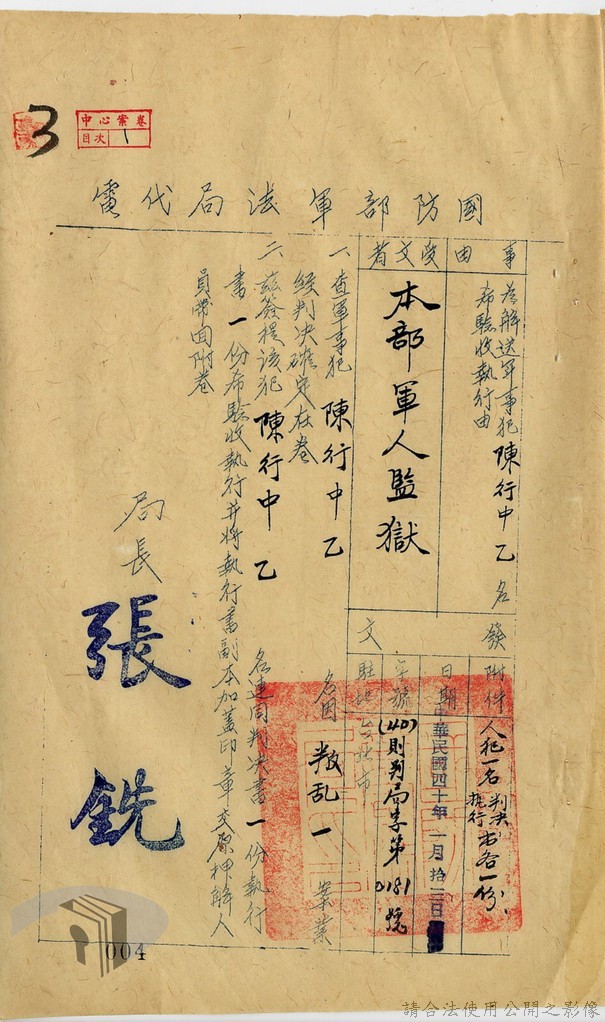 3
中心案卷
目次 1
國防部軍法局代電
事由
為解送軍事犯陳行中乙名
希驗收執行由
受文者
本部軍人監獄
發文
附件
人犯一名判決執行書各一份
日期
中華民國四十年一月拾三日
字號
(40)則判局字第0181號
駐地
台北市
一、查軍事犯陳行中乙名因叛乱一案業
經判決確定在卷
二、茲簽提該犯陳行中乙名連同判決書一份執行
書一份希驗收執行并將執行書副本加蓋印章交原押解人
員帶回附卷
局長張銑
004
請合法使用公開之影像